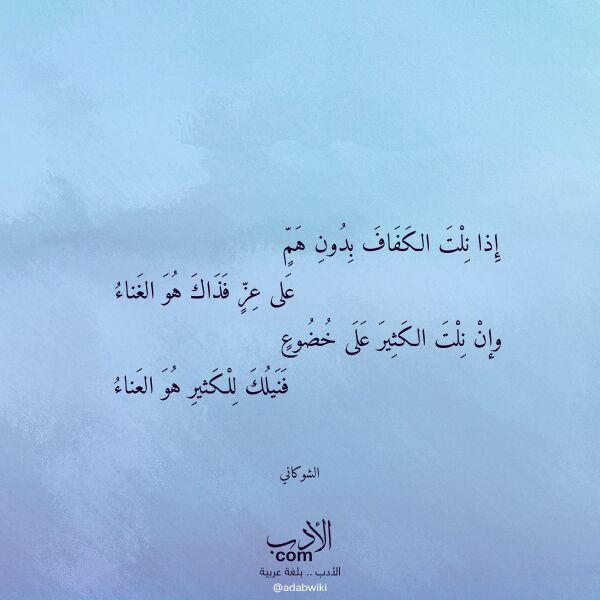 إِذا نِلْتَ الكَفَافَ بِدُونِ هَمٍّ
عَلى عِزٍّ فَذَاكَ هُوَ الغَناءُ
وإنْ نِلْتَ الكَثِيرَ عَلَى خُضُوعٍ
فَنَيلُكَ لِلْكَثيرِ هُوَ العَناءُ
الشوكاني
الأدب
com
الأدب .. بلغة عربية
@adabwiki